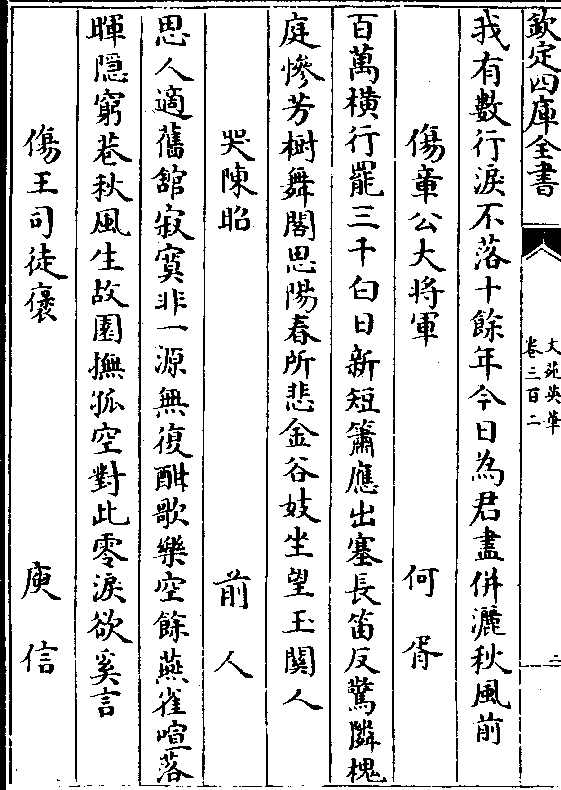 欽定四庫全書
文苑英華
卷三百二
二
我有數行淚不落十餘年今日為君盡併灑秋風前
傷章公大將軍 何胥
百萬横行罷三千白日新短簫應出塞長笛反驚隣槐
庭慘芳樹舞閣思陽春所悲金谷妓坐望玉關人
哭陳昭 前人
思人適舊舘寂寞非一源無復酣歌樂空餘燕雀喧落
暉隠窮巷秋風生故園撫孤空對此零淚欲奚言
傷王司徒襃 庾信